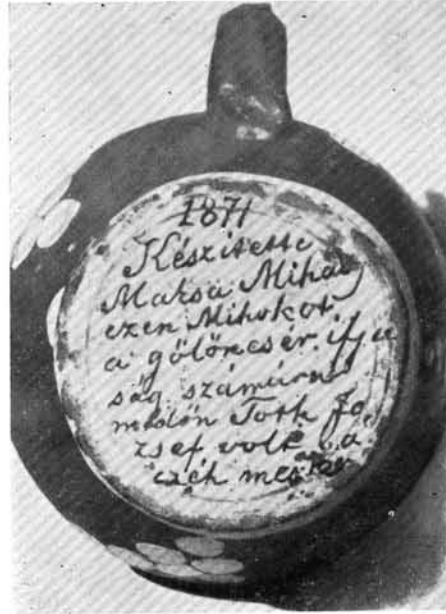 1871
Készitette
Mazsa Mihaly
ezen Mihokot
a gölöncsér ifju
ság számára
midőn Toth Jo
zsef volt a
czéh mester